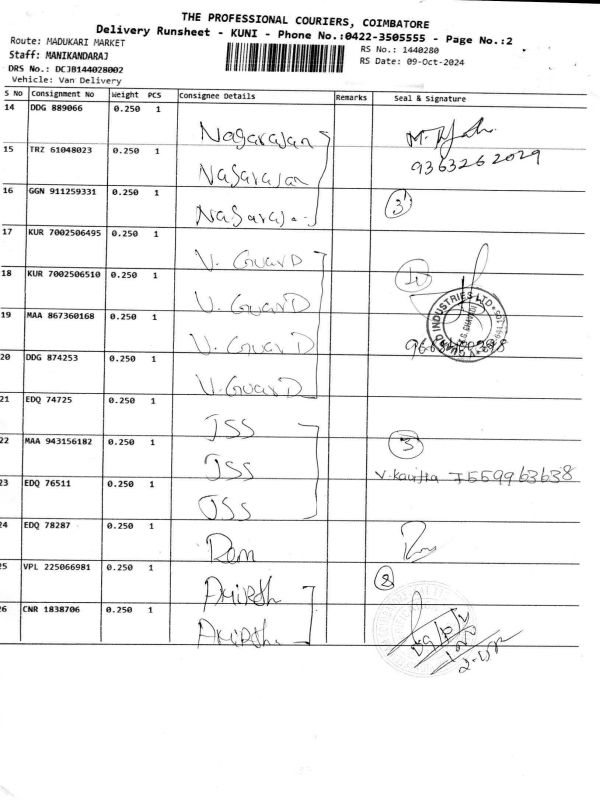 THE PROFESSIONAL COURIERS, COIMBATORE
Delivery Runsheet - KUNI - Phone No.:0422-3505555 - Page No.:2
Route: MADUKARI MARKET
RS No.: 1440280
Staff: MANIKANDARAJ
RS Date: 09-Oct-2024
DRS No.: DCJB144028002
Vehicle: Van Delivery
S No Consignment No Weight PCS Consignee Details Remarks Seal & Signature
14 DDG 889066 0.250 1 Nagarajan
15 TRZ 61048023 0.250 1 Nagarajan 9363262029
16 GGN 911259331 0.250 1 Nagaraja 3
17 KUR 7002506495 0.250 1 V. GuarD
18 KUR 7002506510 0.250 1 V. GuarD
19 MAA 867360168 0.250 1 V. GuarD INDUSTRIES LTD
20 DDG 874253 0.250 1 V. GuarD
21 EDQ 74725 0.250 1 JSS
22 MAA 943156182 0.250 1 JSS 3
23 EDQ 76511 0.250 1 JSS 7559963638
24 EDQ 78287 0.250 1 Ram
25 VPL 225066981 0.250 1 AKIRSh
26 CNR 1838706 0.250 1 AKIRSh